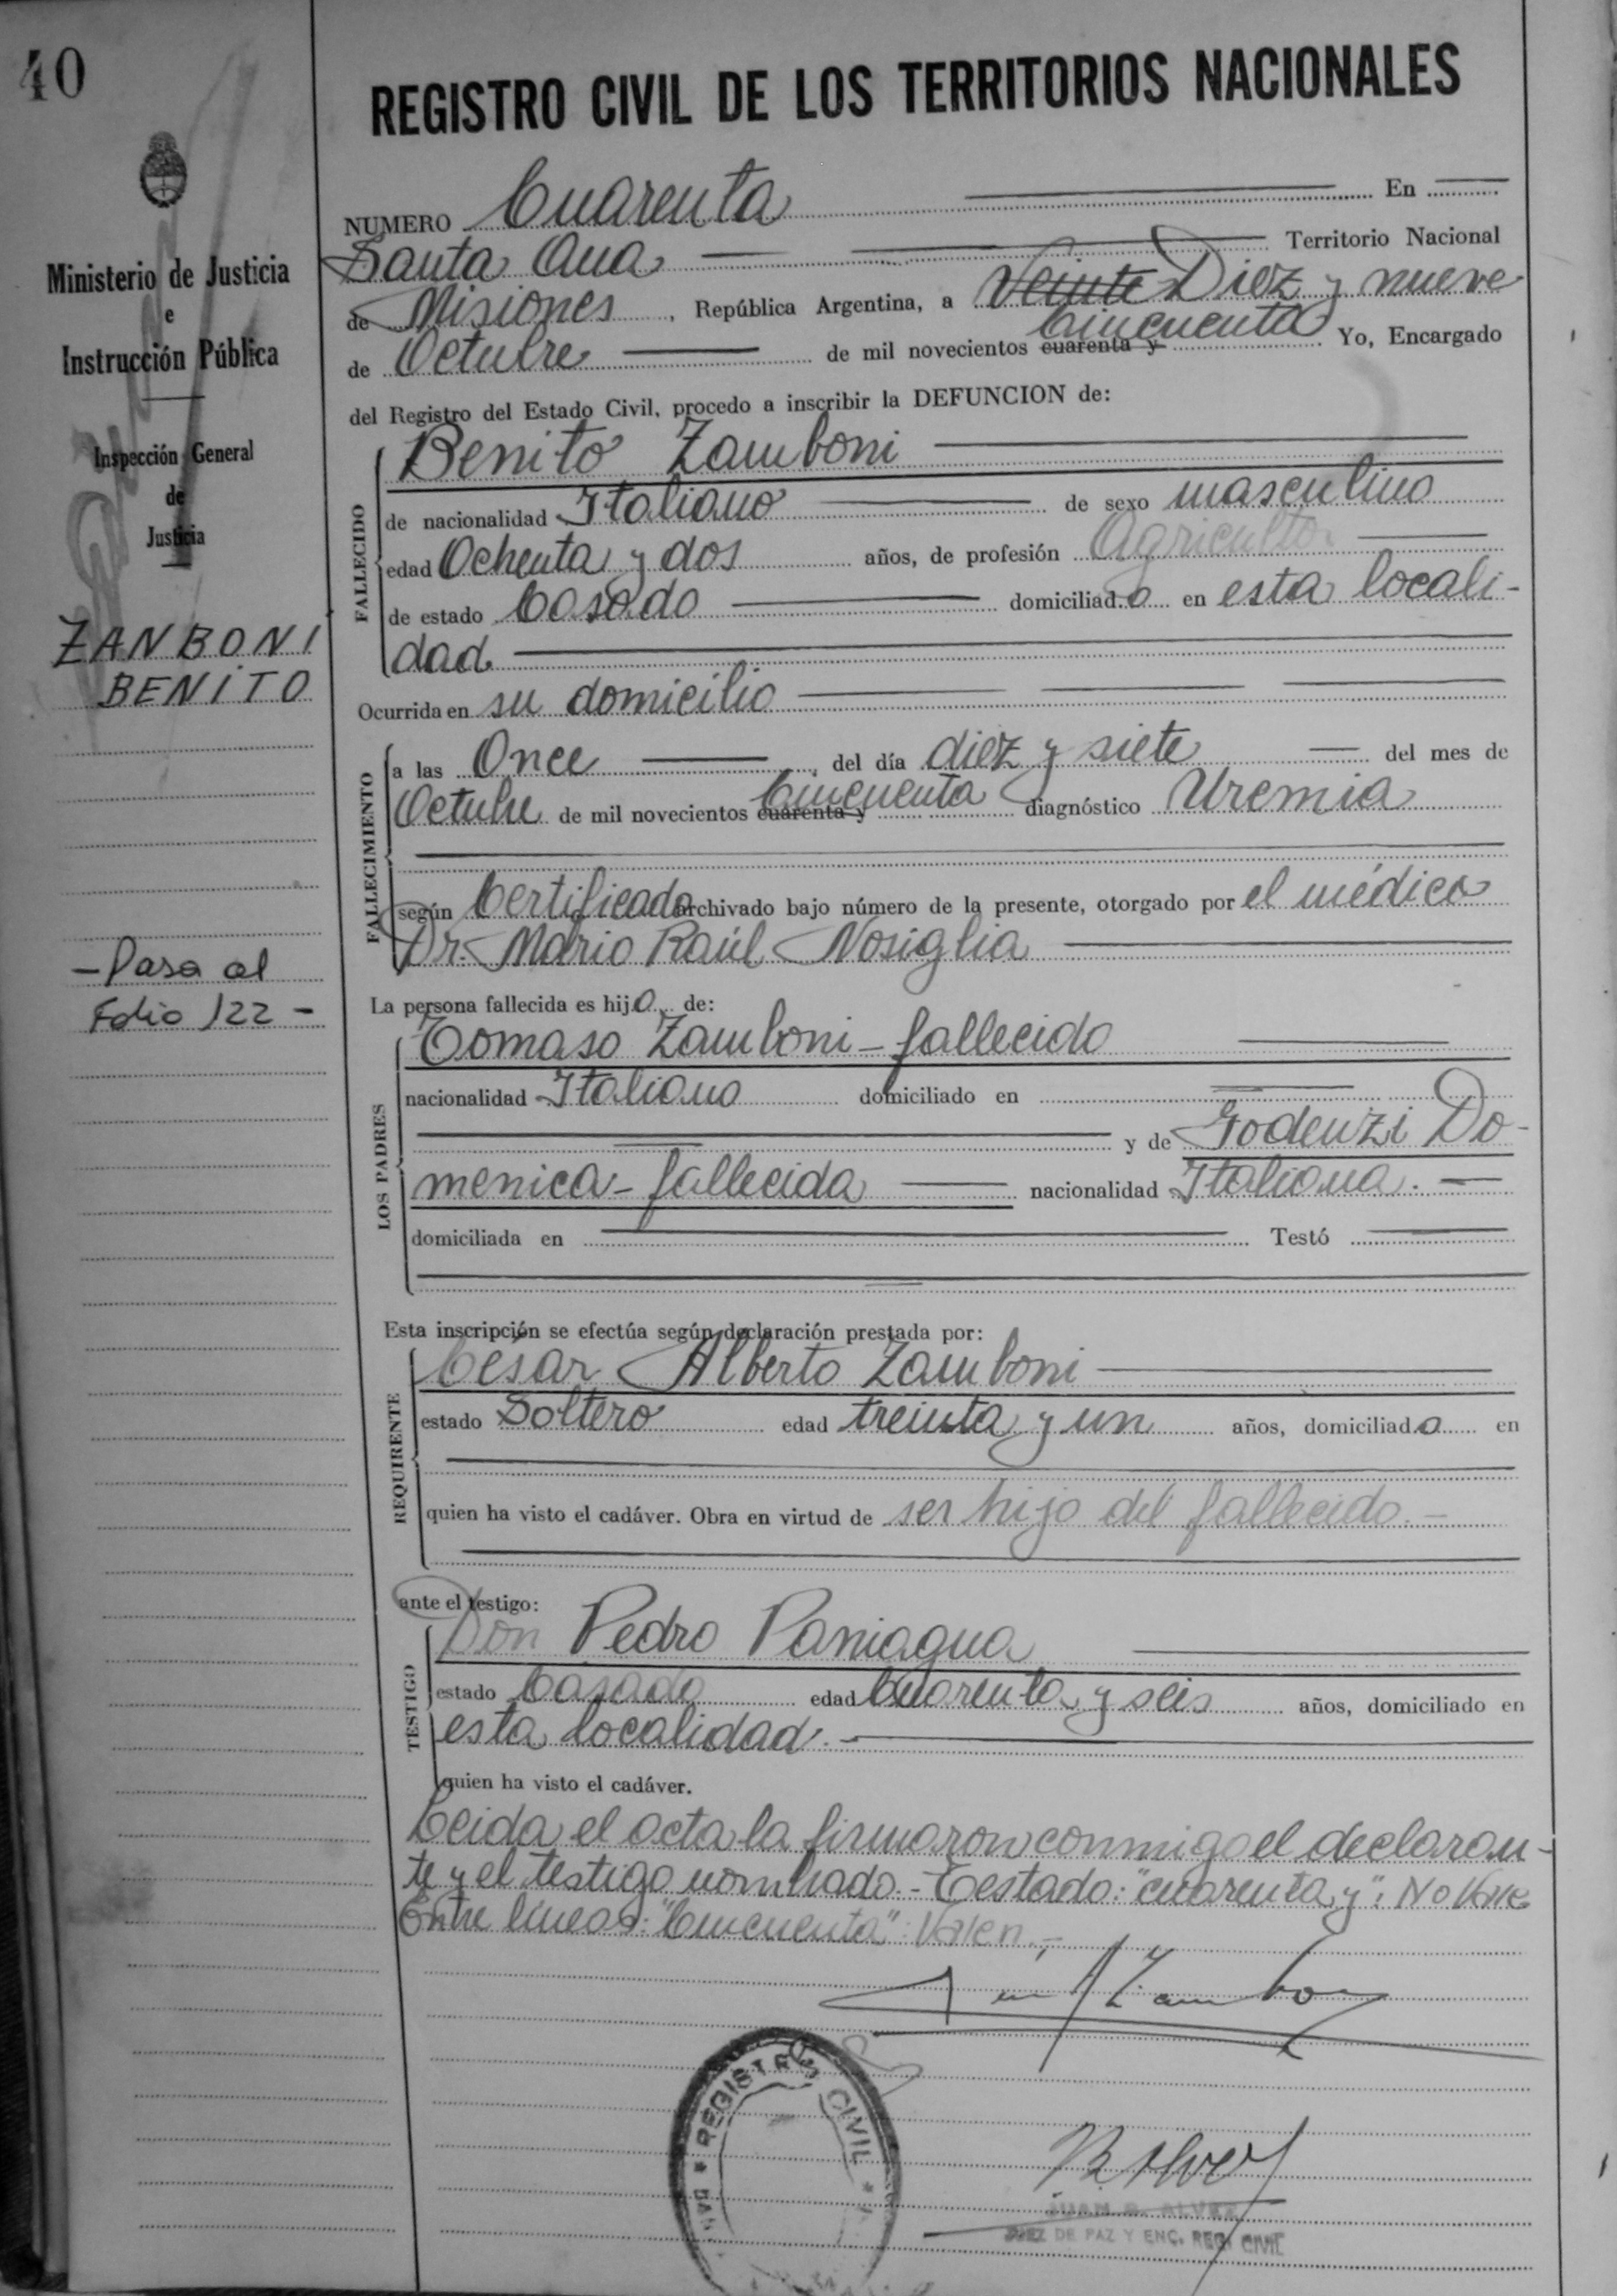 40
REGISTRO CIVIL DE LOS TERRITORIOS NACIONALES
Ministerio de Justicia
e
Instrucción Pública
Inspección General
de
Justicia
ZANBONI
BENITO
-Pasa al
Folio 122-
NUMERO Cuarenta En
Santa Ana Territorio Nacional
de Misiones, República Argentina, a Veinte Diez y nueve
de Octubre de mil novecientos cuarenta y Cincuenta Yo, Encargado
del Registro del Estado Civil, procedo a inscribir la DEFUNCION de:
FALLECIDO
Benito Zamboni
de nacionalidad Italiano de sexo masculino
edad Ochenta y dos años, de profesión Agricultor
de estado Casado domiciliado en esta locali-
dad
Ocurrida en su domicilio
FALLECIMIENTO
a las Once, del día diez y siete del mes de
Octubre de mil novecientos cuarenta y Cincuenta diagnóstico Uremia
según Certificado archivado bajo número de la presente, otorgado por el médico
Dr. Mario Raúl Nosiglia
La persona fallecida es hijo de:
LOS PADRES
Tomaso Zamboni - fallecido
nacionalidad Italiano domiciliado en
y de Godenzi Do-
menica - fallecida nacionalidad Italiana. -
domiciliada en Testó
Esta inscripción se efectúa según declaración prestada por:
REQUIRENTE
César Alberto Zamboni
estado Soltero edad treinta y un años, domiciliado en
quien ha visto el cadáver. Obra en virtud de ser hijo del fallecido. -
ante el testigo:
TESTIGO
Don Pedro Paniagua
estado Casado edad Cuarenta y seis años, domiciliado en
esta localidad. -
quien ha visto el cadáver.
Leida el acta la firmaron conmigo el declaran-
te y el testigo nombrado. - Testado: "cuarenta y": No Vale
Entre lineas: "Cincuenta": Valen. -
REGISTRO CIVIL
JUAN B. ALVEZ
JUEZ DE PAZ Y ENC. REG. CIVIL